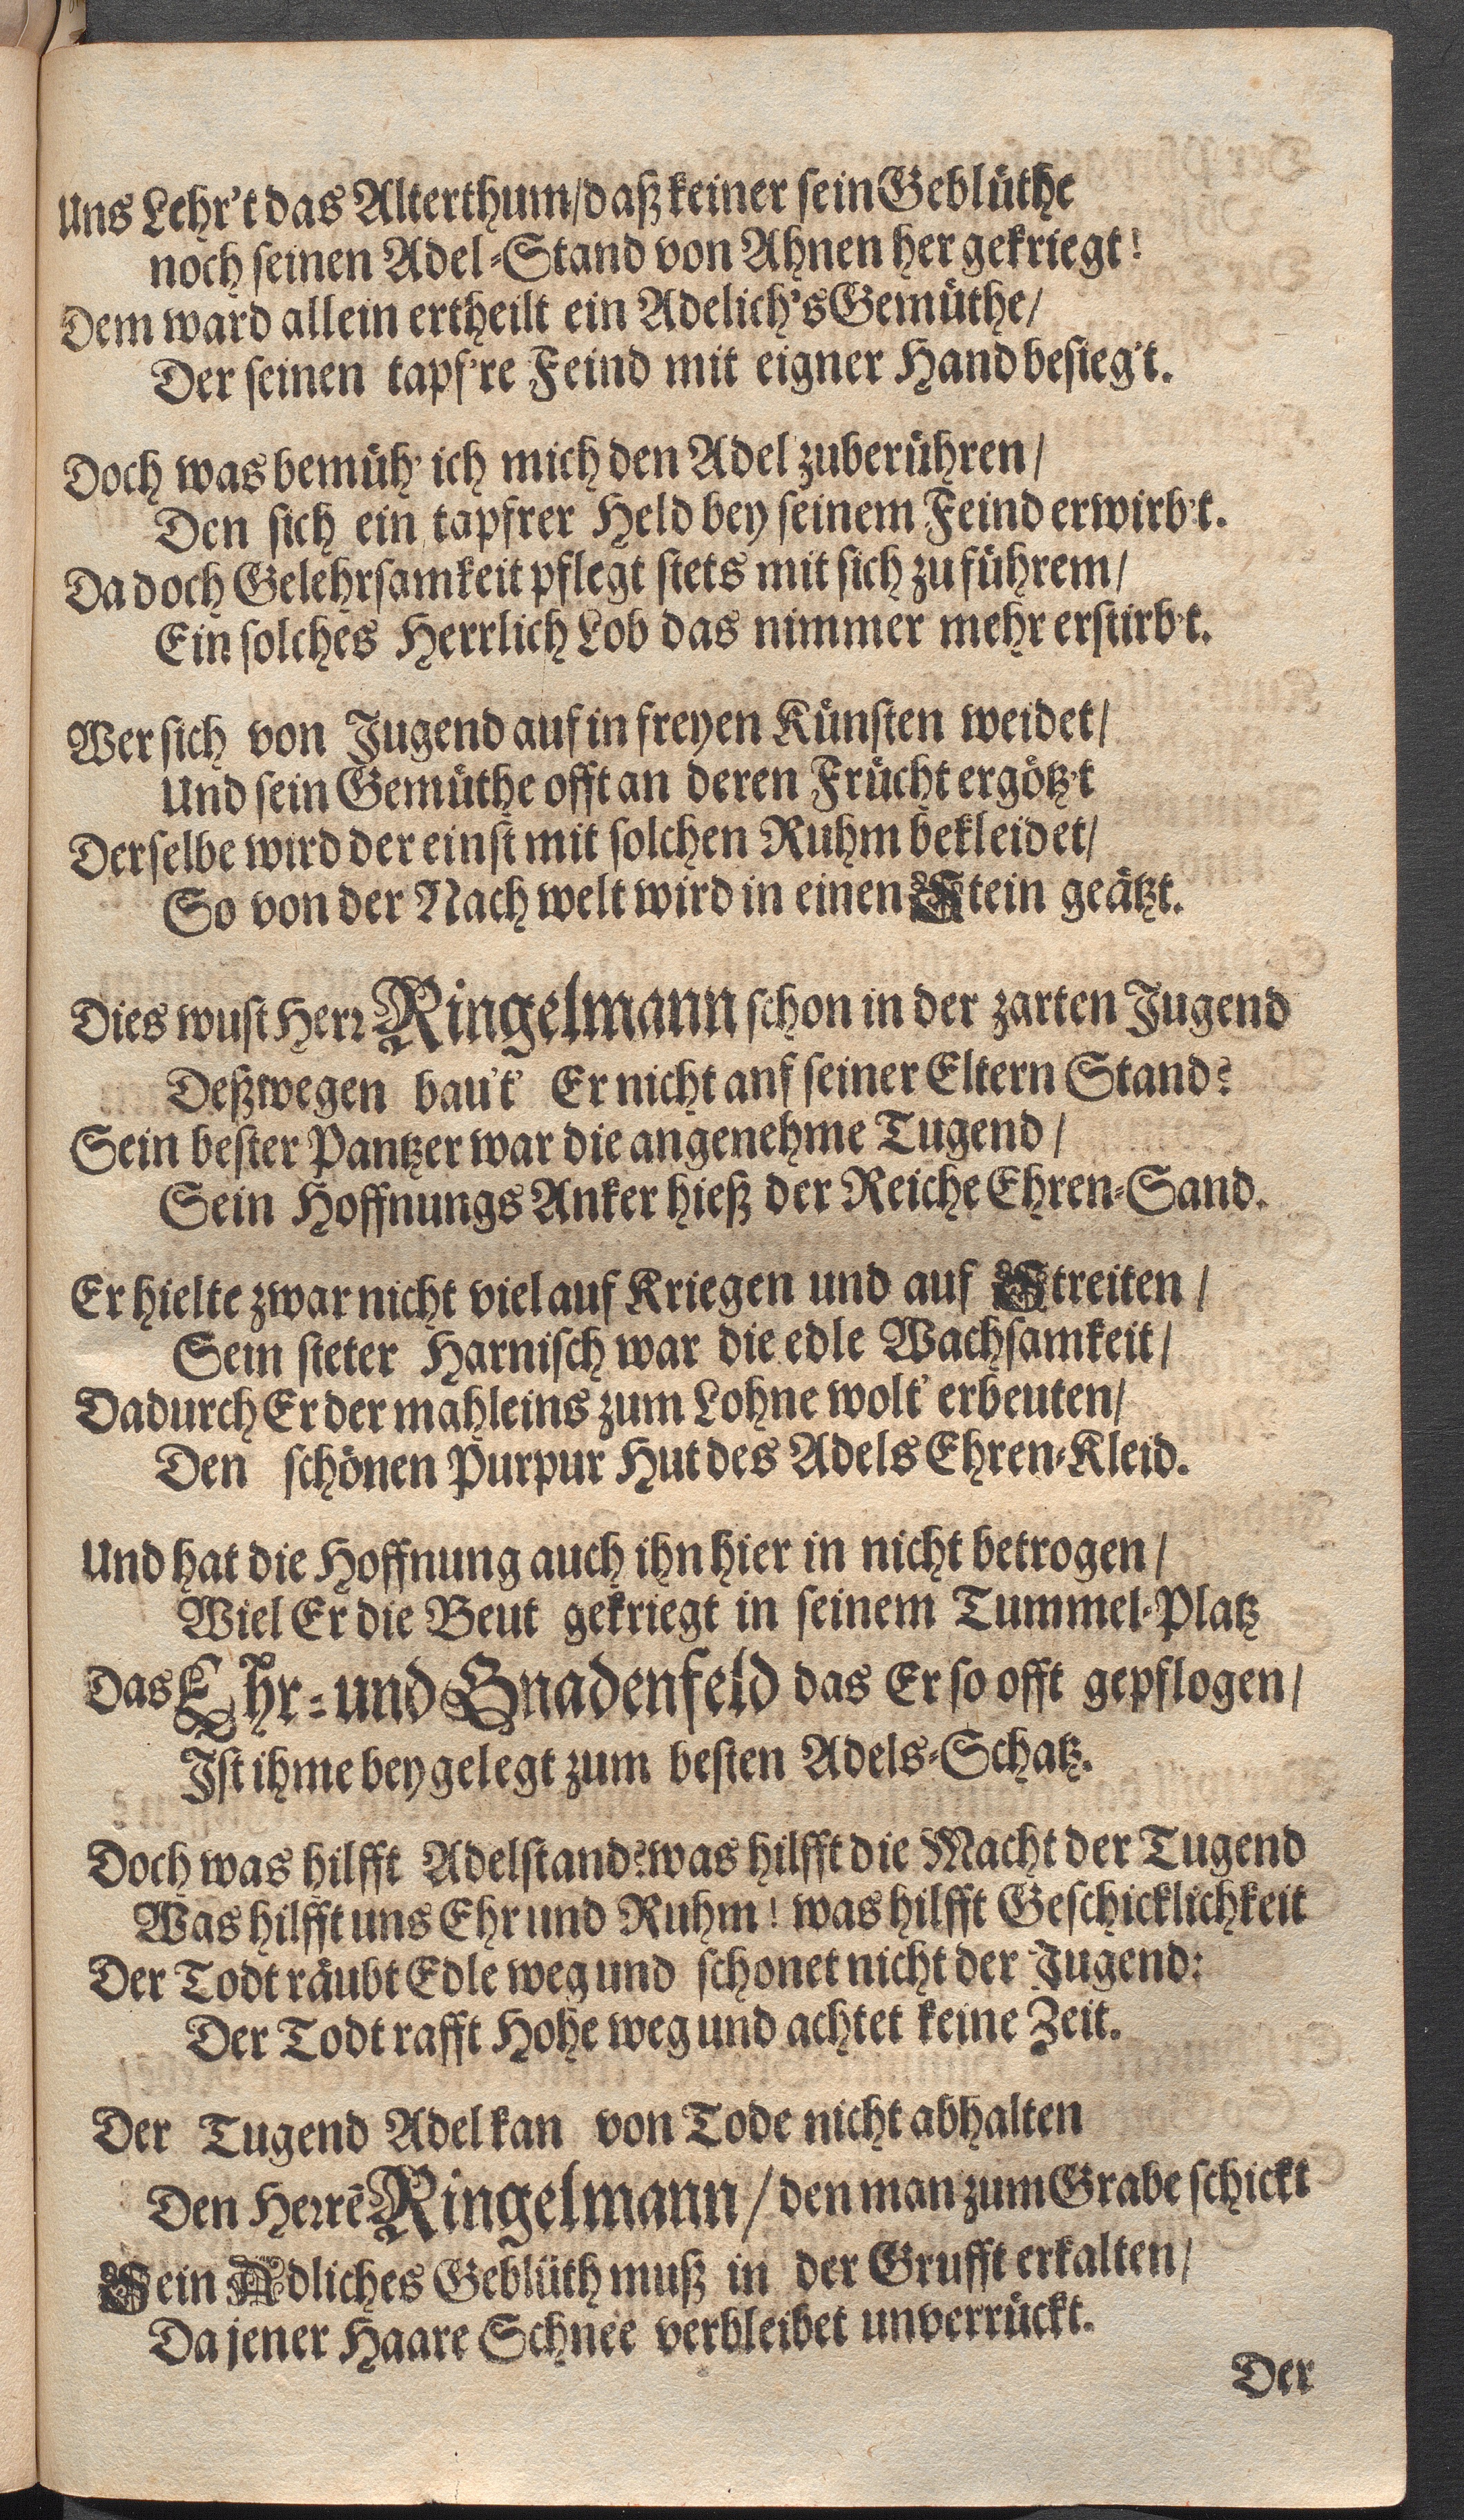 Uns Lehr't das Alterthum/daß keiner sein Geblüthe
noch seinen Adel-Stand von Ahnen her gekriegt!
Dem ward allein ertheilt ein Adelich's Gemüthe/
Der seinen tapf're Feind mit eigner Hand besieg't.
Doch was bemüh' ich mich den Adel zuberühren/
Den sich ein tapfrer Held bey seinem Feind erwirb't.
Da doch Gelehrsamkeit pflegt stets mit sich zu führem/
Ein solches Herrlich Lob das nimmer mehr erstirb't.
Wer sich von Jugend auf in freyen Künsten weidet/
Und sein Gemüthe offt an deren Frücht ergötz't
Derselbe wird der einst mit solchen Ruhm bekleidet/
So von der Nach welt wird in einen Stein geätzt.
Dies wust Herr Ringelmann schon in der zarten Jugend
Deßwegen bau't' Er nicht anf seiner Eltern Stand?
Sein bester Pantzer war die angenehme Tugend/
Sein Hoffnungs Anker hieß der Reiche Ehren-Sand.
Er hielte zwar nicht viel auf Kriegen und auf Streiten/
Sein steter Harnisch war die edle Wachsamkeit/
Dadurch Er der mahleins zum Lohne wolt' erbeuten/
Den schönen Purpur Hut des Adels Ehren-Kleid.
Und hat die Hoffnung auch ihn hier in nicht betrogen/
Wiel Er die Beut gekriegt in seinem Tummel-Platz
Das Ehr- und Gnadenfeld das Er so offt gepflogen/
Ist ihme bey gelegt zum besten Adels-Schatz.
Doch was hilfft Adelstand? was hilfft die Macht der Tugend
Was hilfft uns Ehr und Ruhm! was hilfft Geschicklichkeit
Der Todt räubt Edle weg und schonet nicht der Jugend:
Der Todt rafft Hohe weg und achtet keine Zeit.
Der Tugend Adel kan von Tode nicht abhalten
Den Herrē Ringelmann/ den man zum Grabe schickt
Sein Adliches Geblüth muß in der Grufft erkalten/
Da jener Haare Schnee verbleibet unverrückt.
Der